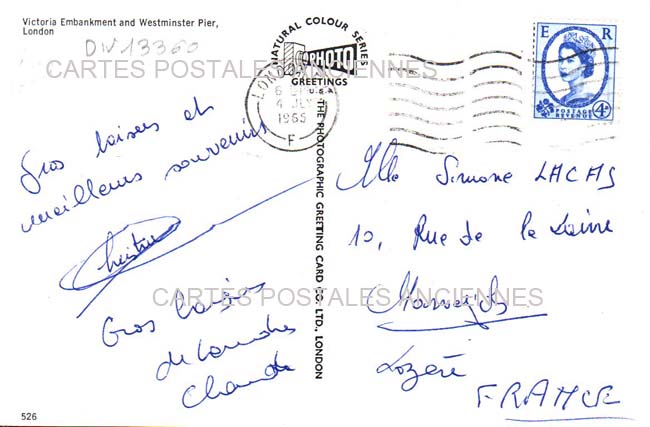 Victoria Embankment and Westminster Pier,
London
DIV13360
CARTES POSTALES ANCIENNES
Gros baisers et
meilleurs souvenirs
Gros baisers
de Londres
NATURAL COLOUR SERIES
PHOTO
GREETINGS
U.S.A
THE PHOTOGRAPHIC GREETING CARD CO., LTD., LONDON
LONDON
4 JLY
1965
F
E R
POSTAGE
REVENUE
4D
Mlle Simone LACAS
10, Rue de la Laine
CARTES POSTALES ANCIENNES
Marvejols
Lozère
FRANCE
526